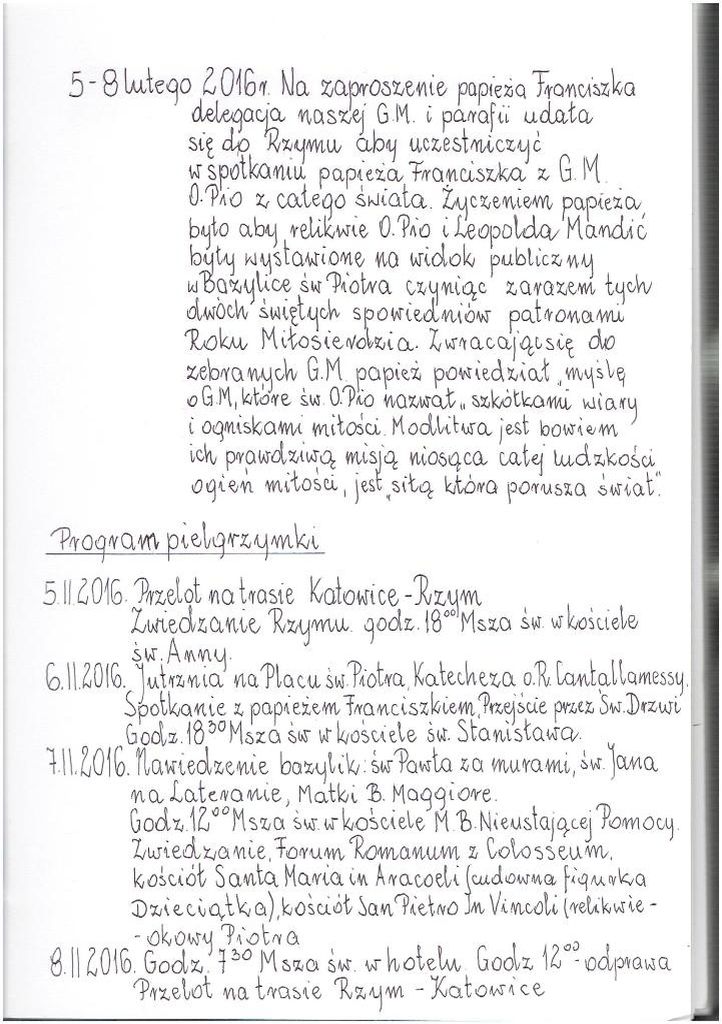 5-8 lutego 2016r. Na zaproszenie papieża Franciszka
delegacja naszej G.M. i parafii udała
się do Rzymu aby uczestniczyć
w spotkaniu papieża Franciszka z G.M.
O.Pio z całego świata. Życzeniem papieża
było aby relikwie O.Pio i Leopolda Mandić
były wystawione na widok publiczny
w Bazylice św Piotra czyniąc zarazem tych
dwóch świętych spowiedniów patronami
Roku Miłosierdzia. Zwracając się do
zebranych G.M. papież powiedział „myślę
o G.M, które św. O.Pio nazwał „ szkółkami wiary
i ogniskami miłości. Modlitwa jest bowiem
ich prawdziwą misją niosąca całej ludzkości
ogień miłości, jest „siłą która porusza świat".
Program pielgrzymki
5.II.2016. Przelot na trasie Katowice-Rzym
Zwiedzanie Rzymu. godz. 18⁰⁰ Msza św. w kościele
św. Anny.
6.II.2016. Jutrznia na Placu św. Piotra, Katecheza o.R. Cantallamessy.
Spotkanie z papieżem Franciszkiem, Przejście przez Św. Drzwi
Godz. 18³⁰ Msza św w kościele św. Stanisława.
7.II.2016. Nawiedzenie bazylik: św Pawła za murami, św. Jana
na Lateranie, Matki B. Maggiore.
Godz. 12⁰⁰ Msza św. w kościele M.B. Nieustającej Pomocy.
Zwiedzanie, Forum Romanum z Colosseum,
kościół Santa Maria in Aracoeli (cudowna figurka
Dzieciątka), kościół San Pietro In Vincoli (relikwie-
- okowy Piotra
8.II 2016. Godz. 7³⁰ Msza św. w hotelu. Godz 12⁰⁰- odprawa
Przelot na trasie Rzym - Katowice